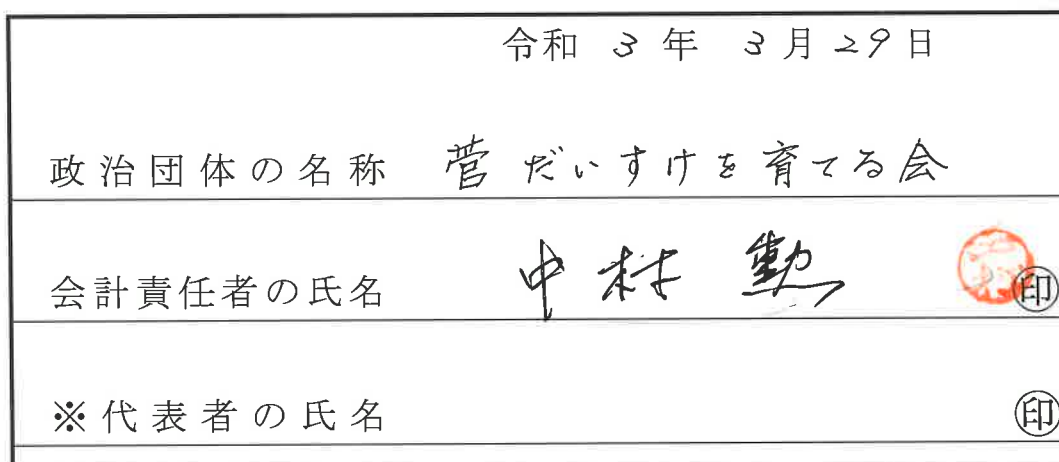 令和 3 年 3 月 29 日
政治団体の名称 菅だいすけを育てる会
会計責任者の氏名 中村 勲 印
※代表者の氏名 印